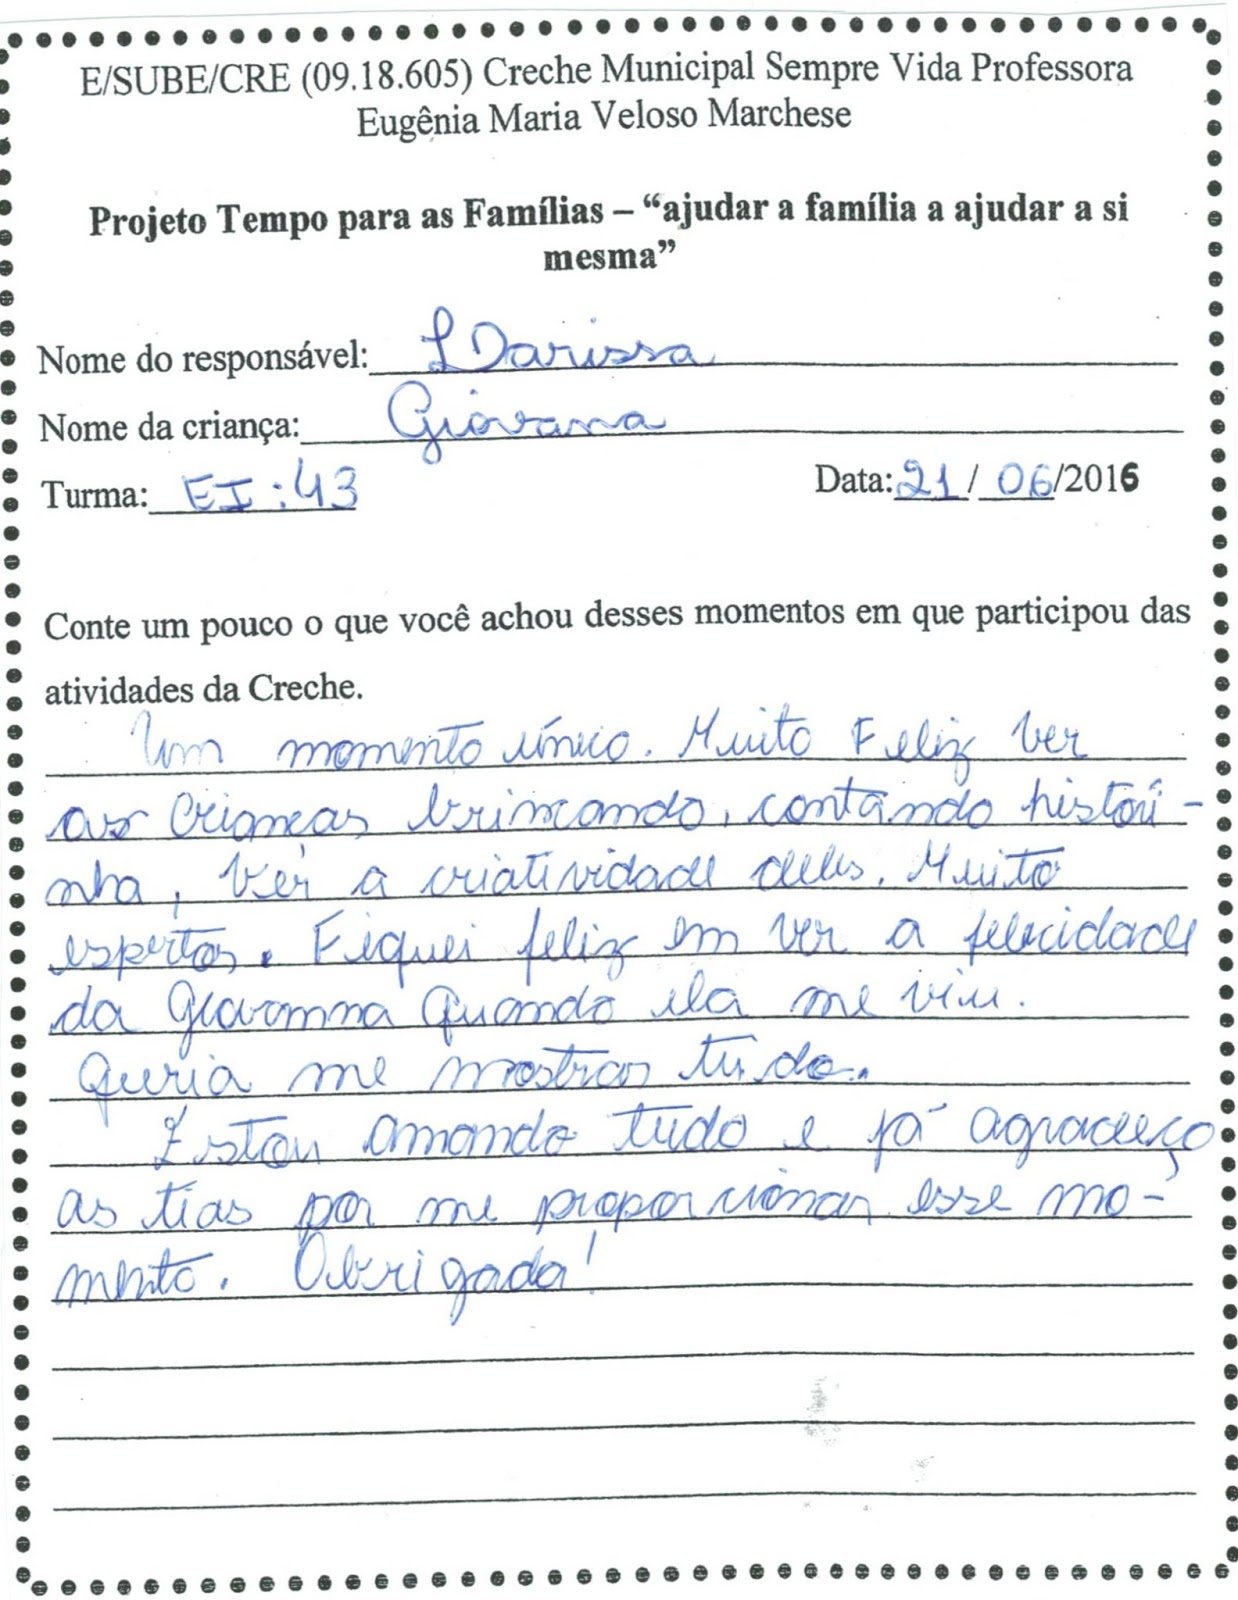 E/SUBE/CRE (09.18.605) Creche Municipal Sempre Vida Professora
Eugênia Maria Veloso Marchese
Projeto Tempo para as Famílias – “ajudar a família a ajudar a si
mesma”
Nome do responsável: LDarissa
Nome da criança: Giovana
Turma: EI:43 Data: 21/ 06/2016
Conte um pouco o que você achou desses momentos em que participou das
atividades da Creche.
Um momento único. Muito Feliz ver
as Crianças brincando, contando histori-
nha, ver a criatividade deles. Muito
espertos. Fiquei feliz em ver a felicidade
da Giovanna Quando ela me viu.
Queria me mostrar tudo.
Estou amando tudo e já agradeço
as tias por me proporcionar esse mo-
mento. Obrigada!